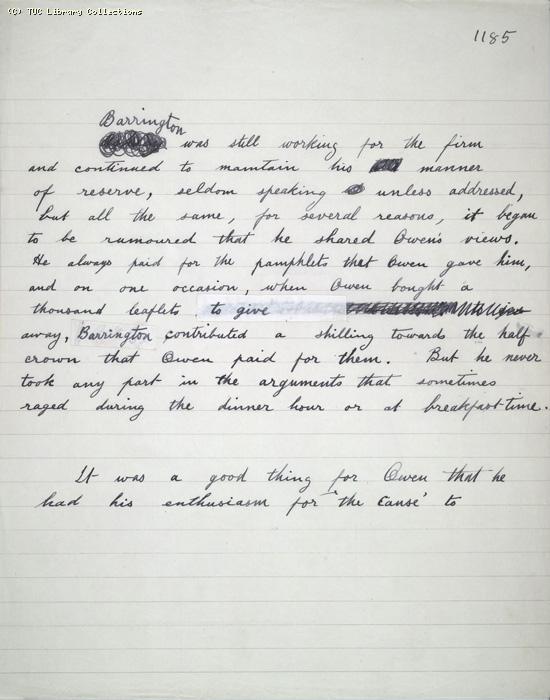 (C) TUC Library Collections
1185
Barrington
was still working for the firm
and continued to maintain his manner
of reserve, seldom speaking unless addressed,
but all the same, for several reasons, it began
to be rumoured that he shared Owen's views.
He always paid for the pamphlets that Owen gave him,
and on one occasion, when Owen bought a
thousand leaflets to give
away, Barrington contributed a shilling towards the half-
crown that Owen paid for them. But he never
took any part in the arguments that sometimes
raged during the dinner hour or at breakfast-time.
It was a good thing for Owen that he
had his enthusiasm for 'the cause' to